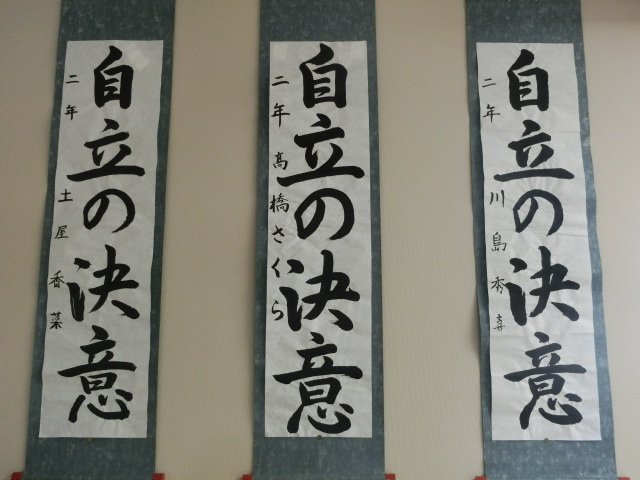 自立の決意
二年 川島秀喜
自立の決意
二年 高橋さくら
自立の決意
二年 土屋香菜